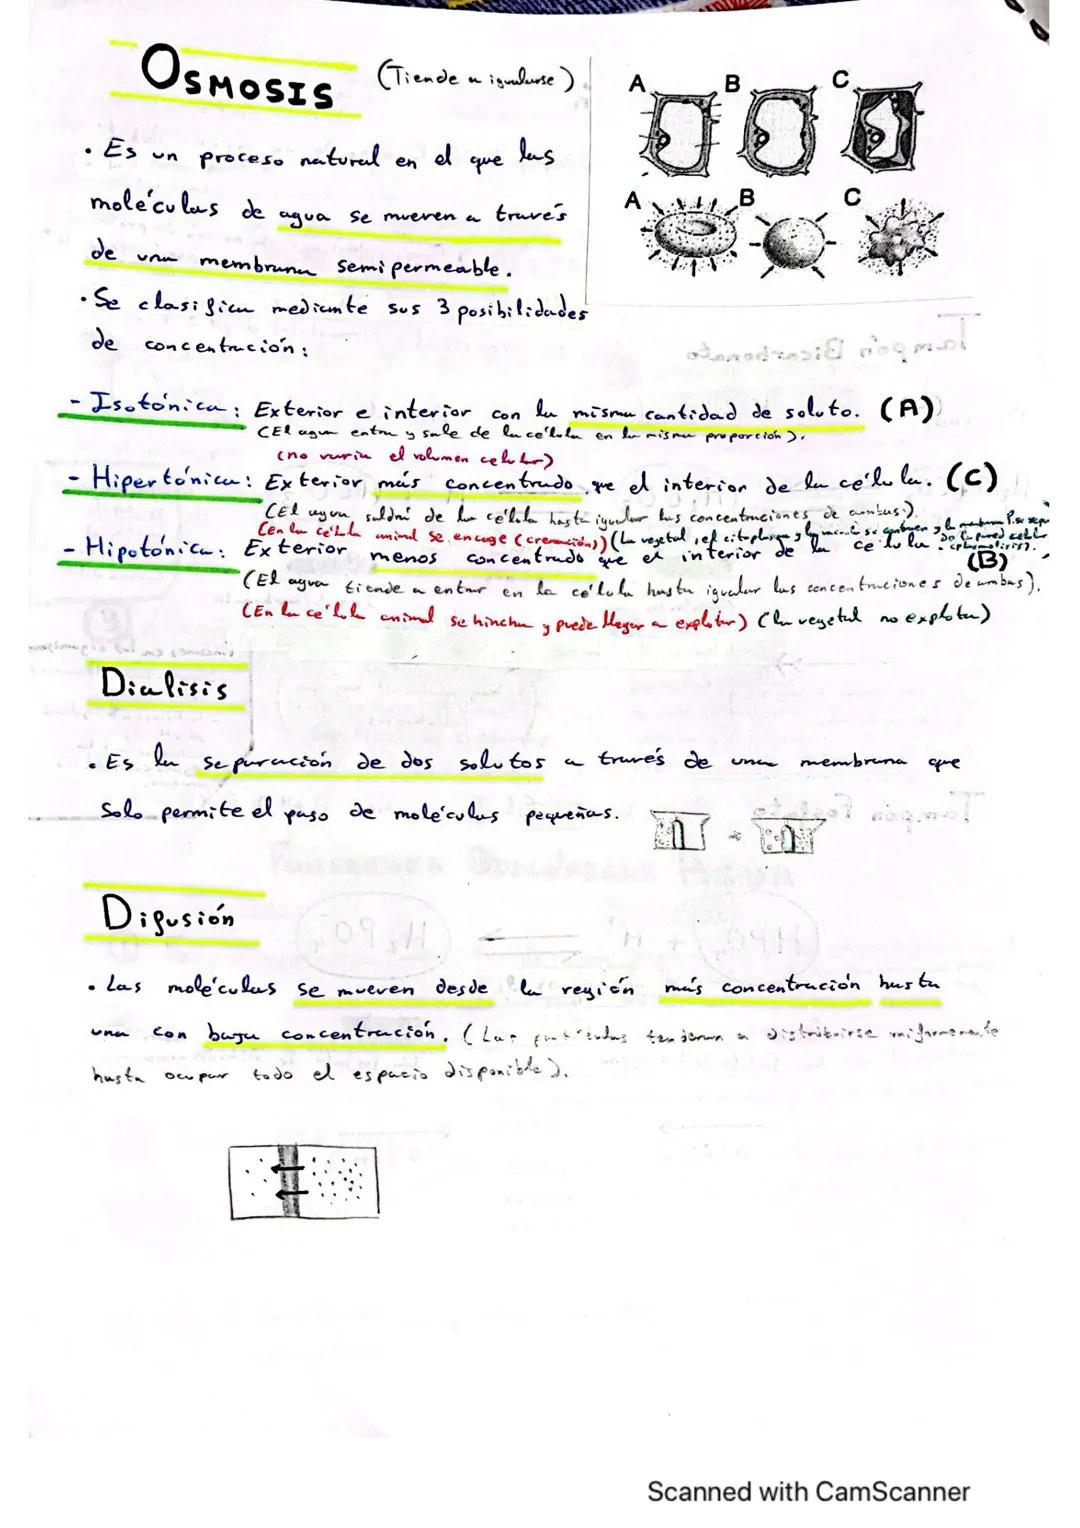 OSMOSIS (Tiende a igualarse)
A B C
A B C
· Es un proceso natural en el que las
moléculas de agua se mueven a través
de una membrana semipermeable.
· Se clasifica mediante sus 3 posibilidades
de concentración:
- Isotónica: Exterior e interior con la misma cantidad de soluto. (A)
(El agua entra y sale de la célula en la misma proporción).
(no varia el volumen celular)
- Hipertónica: Exterior más concentrado que el interior de la célula. (C)
(El agua saldrá de la célula hasta igualar las concentraciones de ambas).
(En la célula animal se encoge (crenación)) (La vegetal, el citoplasma y la se contraen y la membrana P. se sepa
de la pared celular
(plasmolisis)).
- Hipotónica: Exterior menos concentrado que el interior de la célula. (B)
(El agua tiende a entrar en la célula hasta igualar las concentraciones de ambas).
(En la célula animal se hincha y puede llegar a explotar) (la vegetal no explota)
Dialisis
· Es la separación de dos solutos a través de una membrana que
solo permite el paso de moléculas pequeñas.
Difusión
· Las moléculas se mueven desde la región más concentración hasta
una con baja concentración. (Las partículas tenderan a distribuirse uniformemente
hasta ocupar todo el espacio disponible).
Scanned with CamScanner